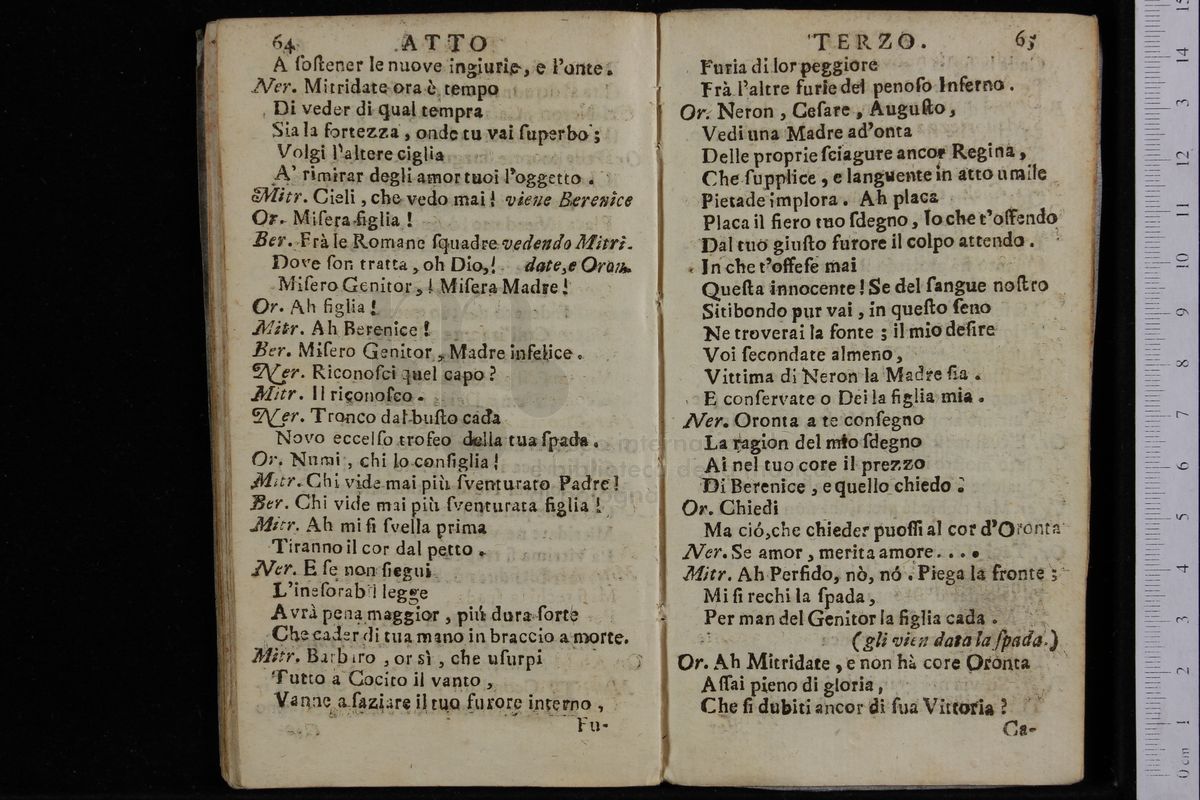 64 ATTO
A ſoſtener le nuove ingiurie, e l'onte.
Ner. Mitridate ora è tempo
Di veder di qual tempra
Sia la fortezza, onde tu vai ſuperbo;
Volgi l'altere ciglia
A' rimirar degli amor tuoi l'oggetto.
Mitr. Cieli, che vedo mai! viene Berenice
Or. Miſera figlia!
Ber. Frà le Romane ſquadre vedendo Mitri-
Dove ſon tratta, oh Dio,! date, e Oron.
Miſero Genitor,! Miſera Madre!
Or. Ah figlia!
Mitr. Ah Berenice!
Ber. Miſero Genitor, Madre infelice.
Ner. Riconoſci quel capo?
Mitr. Il riconoſco.
Ner. Tronco dal buſto cada
Novo eccelſo trofeo della tua ſpada.
Or. Numi, chi lo conſiglia!
Mitr. Chi vide mai più ſventurato Padre!
Ber. Chi vide mai più ſventurata figlia!
Mitr. Ah mi ſi ſvella prima
Tiranno il cor dal petto.
Ner. E ſe non ſiegui
L'ineſorabil legge
Avrà pena maggior, più dura ſorte
Che cader di tua mano in braccio a morte.
Mitr. Barbaro, or sì, che uſurpi
Tutto a Cocito il vanto,
Vanne a ſaziare il tuo furore interno,
Fu-
TERZO. 65
Furia di lor peggiore
Frà l'altre furie del penoſo Inferno.
Or. Neron, Ceſare, Auguſto,
Vedi una Madre ad'onta
Delle proprie ſciagure ancor Regina,
Che ſupplice, e languente in atto umile
Pietade implora. Ah placa
Placa il fiero tuo ſdegno, Io che t'offendo
Dal tuo giuſto furore il colpo attendo.
In che t'offeſe mai
Queſta innocente! Se del ſangue noſtro
Sitibondo pur vai, in queſto ſeno
Ne troverai la fonte; il mio deſire
Voi ſecondate almeno,
Vittima di Neron la Madre ſia.
E conſervate o Dei la figlia mia.
Ner. Oronta a te conſegno
La ragion del mio ſdegno
Ai nel tuo core il prezzo
Di Berenice, e quello chiedo.
Or. Chiedi
Ma ció, che chieder puoſſi al cor d'Oronta
Ner. Se amor, merita amore....
Mitr. Ah Perfido, nò, nó. Piega la fronte;
Mi ſi rechi la ſpada,
Per man del Genitor la figlia cada.
(gli vien data la ſpada.)
Or. Ah Mitridate, e non hà core Oronta
Aſſai pieno di gloria,
Che ſi dubiti ancor di ſua Vittoria?
Ca-